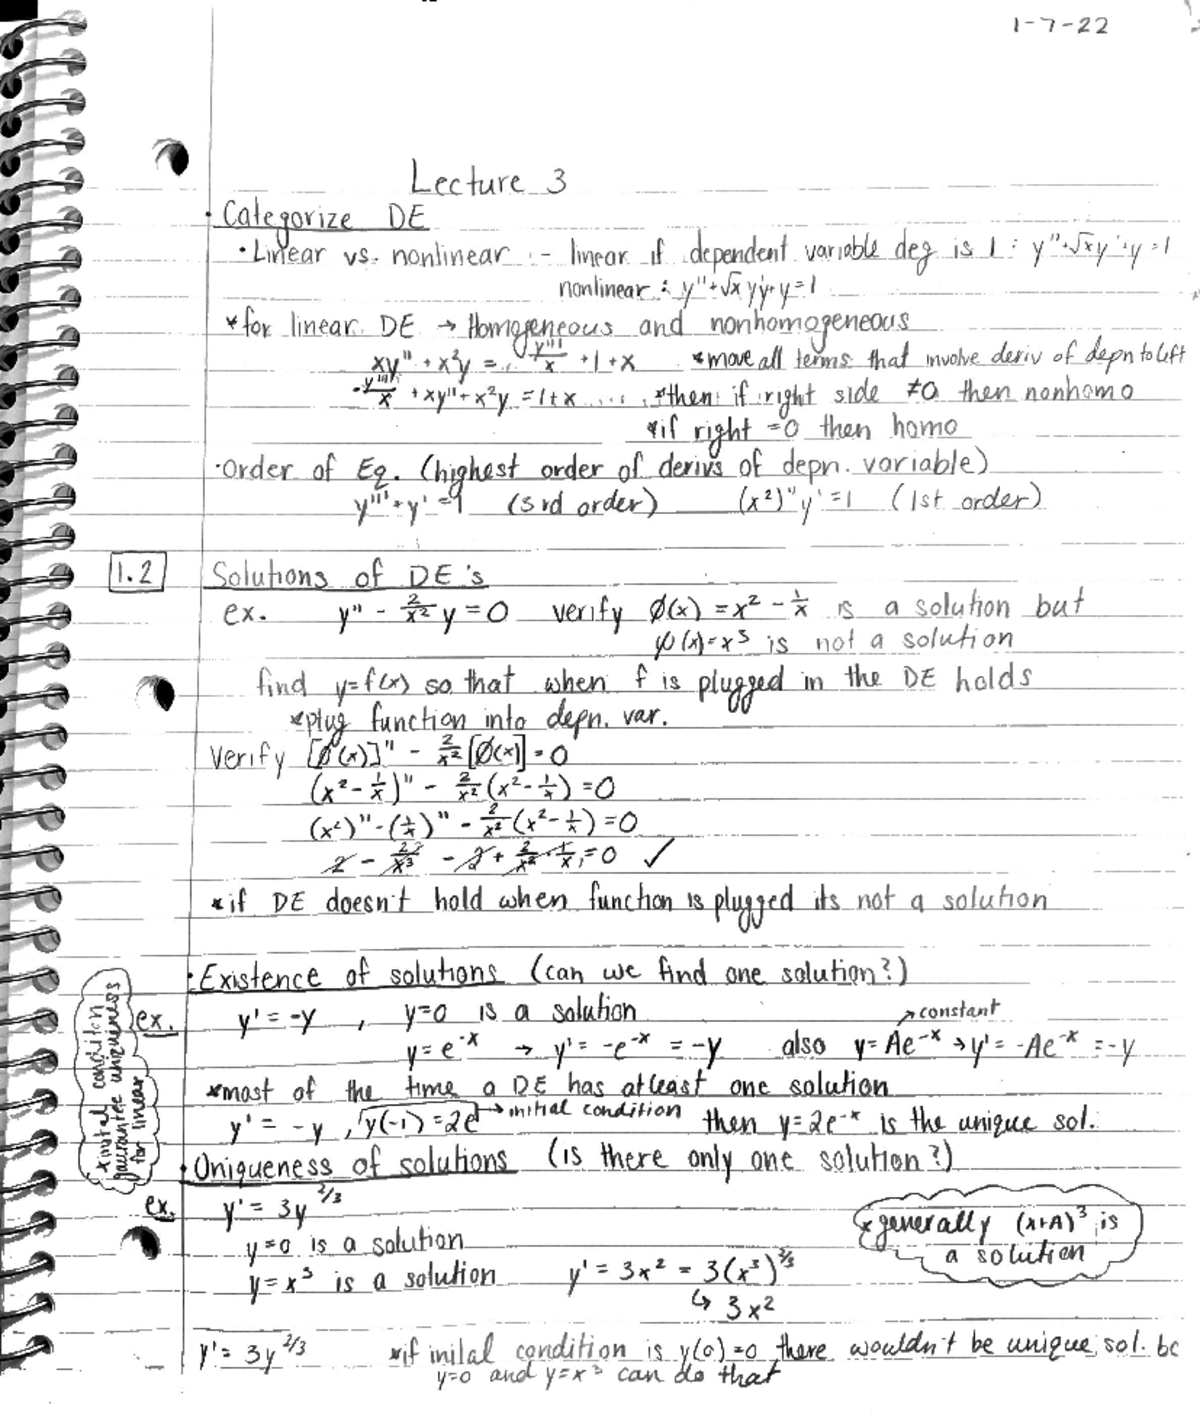 1-7-22
Lecture 3
· Categorize DE
· Linear vs. nonlinear :- linear if dependent variable deg is 1 : y''+√x y'+y=1
nonlinear : y''+√x yy'+y=1
* for linear DE → Homogeneous and nonhomogeneous
xy'' + x²y = y'''/x + 1 + x *move all terms that involve deriv of depn to left
-y'''/x + xy'' + x²y = 1+x *then if right side ≠0 then nonhomo
*if right =0 then homo
· Order of Eq. (highest order of derivs of depn. variable)
y''' + y' = 1 (3rd order) (x²)''y' = 1 (1st order)
1.2 Solutions of DE's
ex. y'' - 2/x² y = 0 verify Ø(x) = x² - 1/x is a solution but
ψ(x)=x³ is not a solution
find y=f(x) so that when f is plugged in the DE holds
*plug function into depn. var.
Verify [Ø(x)]'' - 2/x² [Ø(x)] = 0
(x² - 1/x)'' - 2/x² (x² - 1/x) = 0
(x²)'' - (1/x)'' - 2/x² (x² - 1/x) = 0
2 - 2/x³ - 2 + 2/x² · 1/x = 0 ✓
*if DE doesn't hold when function is plugged its not a solution
· Existence of solutions (can we find one solution?)
ex. y' = -y , y=0 is a solution
↗constant
y = e^-x → y' = -e^-x = -y also y = Ae^-x → y' = -Ae^-x = -y
*most of the time a DE has atleast one solution
y' = -y , y(-1) = 2e → initial condition then y = 2e^-x is the unique sol.
*inital conditon
gaurantee uniqueness
for linear
· Uniqueness of solutions (is there only one solution?)
ex. y' = 3y^2/3
y=0 is a solution
*generally (x+A)³ is
a solution
y = x³ is a solution y' = 3x² = 3(x³)^2/3
↳ 3x²
y' = 3y^2/3 *if inital condition is y(0)=0 there wouldn't be unique sol. bc
y=0 and y=x³ can do that